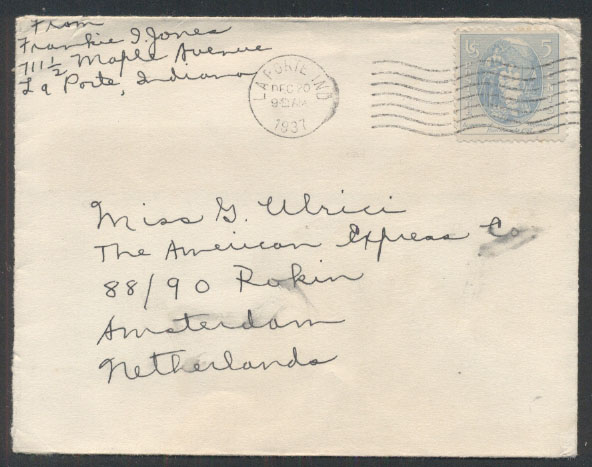 From
Frankie I. Jones
711½ Maple Avenue
La Porte, Indiana
LA PORTE, IND
DEC 20
9 AM
1937
US 5
Miss G. Ulrici
The American Express Co
88/90 Rokin
Amsterdam
Netherlands